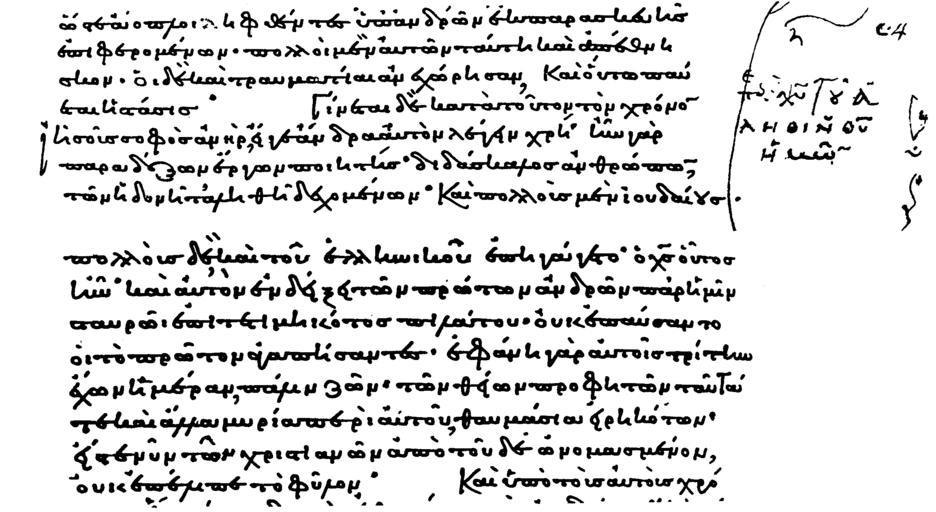 ὥστε ἄοπλοι ληφθέντες ὑπ' ἀνδρῶν ἐκ παρασκευῆς
ἐπιφερομένων· πολλοὶ μὲν αὐτῶν ταύτη καὶ ἀπέθνη
σκον· οἱ δὲ καὶ τραυματίαι ἀνεχώρησαν, Καὶ οὕτω παύ
εται ἡ στάσις· Γίνεται δὲ κατὰ τοῦτον τὸν χρόνο̅
ἰησοῦς σοφὸς ἀνήρ, εἴγε ἄνδρα αὐτὸν λέγειν χρή· ἦν γὰρ
παραδόξων ἔργων ποιητής· διδάσκαλος ἀνθρώπω̅,
τῶν ἡδονῆ τἀληθῆ δεχομένων· Καὶ πολλοὺς μὲν ἰουδαίους·
πολλοὺς δὲ καὶ τοῦ ἑλληνικοῦ ἐπηγάγετο· ὁ χ̅ς οὗτος
ἦν· καὶ αὐτὸν ἐνδείξει τῶν πρώτων ἀνδρῶν παρ' ἡμῖν
σταυρῶ ἐπιτετιμηκότος πιλάτου· οὐκ ἐπαύσαντο
οἱ τὸ πρῶτον ἀγαπήσαντες· ἐφάνη γὰρ αὐτοῖς τρίτην
ἔχων ἡμέραν, πάλιν ζῶν· τῶν θείων προφητῶν ταῦτά
τε καὶ ἄλλα μυρία περὶ αὐτοῦ, θαυμάσια εἰρηκότων·
εἴς τε νῦν τῶν χριστιανῶν ἀπὸ τοῦδε ὠνομασμένον,
οὐκ ἐπέλιπε τὸ φῦλον, Καὶ ὑπὸ τοὺς αὐτοὺς χρό
χ̅υ τοῦ ἀ
ληθιν̅ θ̅υ
ἡμῶν